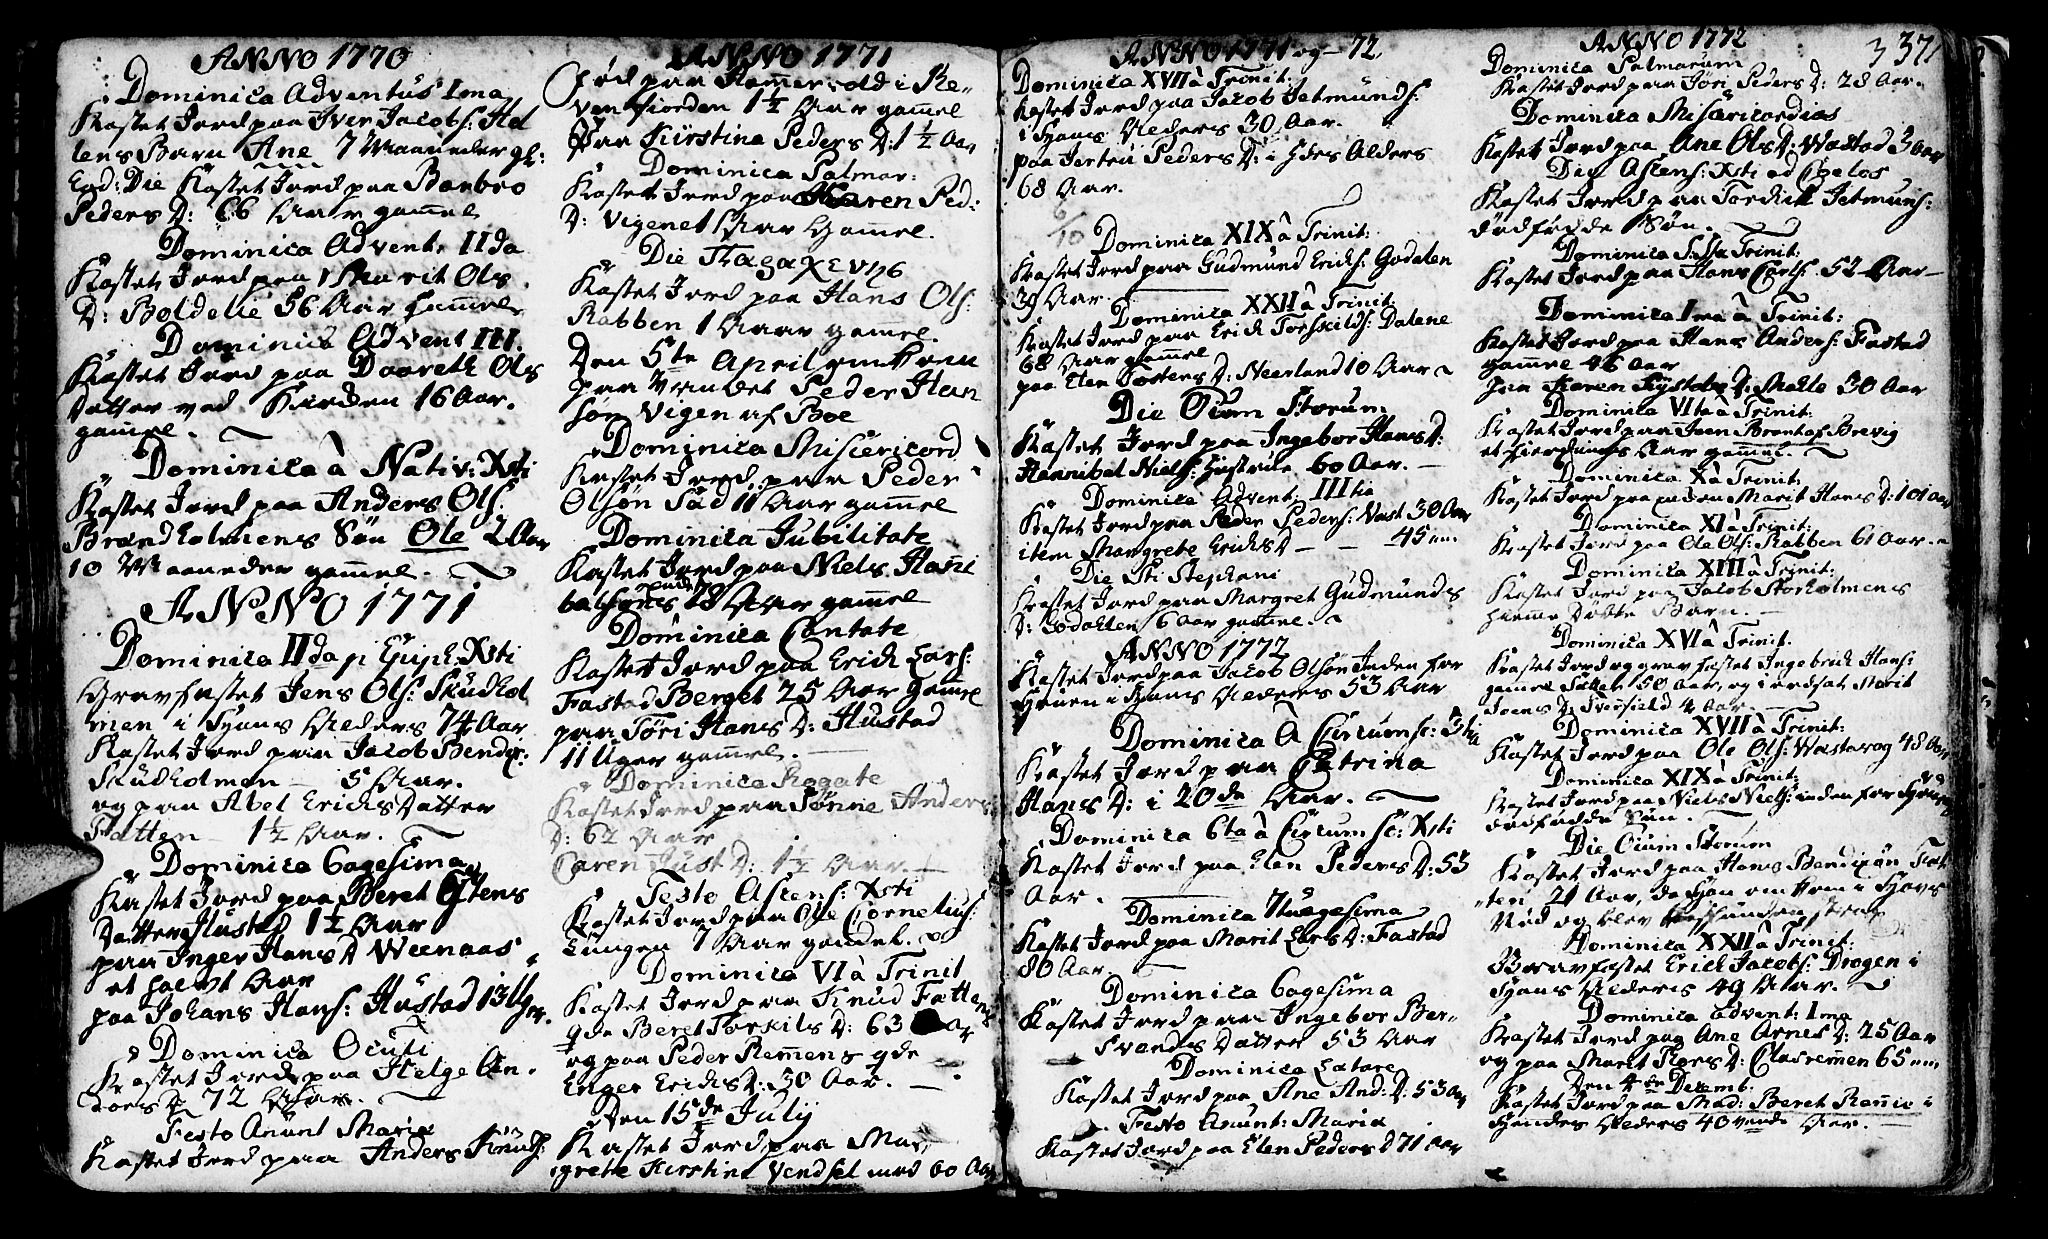 ANNO 1770
Dominica Adventus Ima
Kastet Jord paa Iver Jacobs: Hol
lens Barn Ane 7 Maaneder gl:
Eod: Die Kastet Jord paa Barbro
Peders D: 66 Aar gam̅el
Dominica Advent. IIda
Kastet Jord paa Marit Ols
D: Boldelie 56 Aar gam̅el
Dominica Advent III.
Kastet Jord paa Daareth Ols
Datter ved Kirken 16 Aar.
gam̅el.
Dominica à Nativ: Xsti
Kastet Jord paa Anders Ols:
Brandholmens Søn Ole 2 Aar
10 Maaneder gam̅el.
ANNO 1771
Dominica IIda p Epiph: Xsti
Gravfæstet Jens Ols: Skudhol
men i Hans Alders 74 Aar
Kastet Jord paa Jacob Bendix:
Skudholmen 5 Aar.
og paa Abel Erichs Datter
Fatten 1½ Aar.
Dominica 6agesima
Kastet Jord paa Beret
Datter Hustad 1½ Aar
paa Inger Hans D Weenaas
et halvt Aar
paa Johans Hans: Hustad 13 Uger.
Dominica Oculi
Kastet Jord paa Helge An
dors D 72 Aar.
Festo Anunt Mariæ
Kastet Jord paa Anders Knuds:
ANNO 1771
fød paa Ham̅ervold i Re
ven fiorden 1½ Aar gam̅el
Paa Kirstina Peders D: 1½ Aar
Dominica Palmar:
Kastet Jord paa Karen Ped:
D: Vigenet 1 Aar Gam̅el.
Die
Kastet Jord paa Hans Ols:
Rabben 1 Aar gam̅el.
Den 5te April omkom
paa Vandet Peder Han
søn Vigen af Boe
Dominica Misericord
Kastet Jord paa Peder
Olsøn Sad 11 Aar gam̅el
Dominica Jubilitate
Kastet Jord paa Niels Han̅i
balsøns 78 Aar gam̅el
Dominica Cantate
Kastet Jord paa Erich Lars:
Fastad Berget 25 Aar Gam̅el
paa Töri Hans D: Hustad
11 Uger gam̅el.
Dominica Rogate
Kastet Jord paa Sønne Anders
D: 62 Aar
Caren Just D: 1½ Aar
Festo Ascens: Xsti
Kastet Jord paa Ole Cornelius:
Lüngen 7 Aar gam̅el.
Dominica VI à Trinit
Kastet Jord paa Knud Fatten
qde Beret Torkils D: 63 Aar
og paa Peder Rem̅ens qde
Enger Erichs D: 30 Aar.
Den 15de Julij
Kastet Jord paa Mar
grete Kirstine Vendsel med 60 Aar
ANNO 1771 og 72.
Dominica XVII à Trinit:
Kastet Jord paa Jacob Jetmunds:
i Hans Alders 30 Aar.
paa Jortru Peders D: i Hdes Alders
68 Aar.
6/10
Dominica XIX à Trinit:
Kastet Jord paa Gudmund Erichs: Godalen
39 Aar
Dominica XXII à Trinit:
Kastet Jord paa Erich Torskilds: Dalene
68 Aar gam̅el
paa Elen Torsters D: Neerland 10 Aar
Die Oium Storum
Kastet Jord paa Ingebor Hans D:
Hannibal Niels: Hustrue 60 Aar.
Dominica Advent: IIItia
Kastet Jord paa Peder Peders: Vast 30 Aar
item Margrete Erichs D 45
Die Sti Stephani
Kastet Jord paa Margret Gudmunds
D: Godahlen 6 Aar gam̅el.
ANNO 1772
Kastet Jord paa Jacob Olsøn Inden for
i Hans Alders 53 Aar
Dominica à Circumsc: 3tia
Kastet Jord paa Catrina
Hans D: i 20de Aar.
Dominica 6ta à Circumsc: Xsti
Kastet Jord paa Elen Peders D: 53
Aar.
Dominica 7tuagesima
Kastet Jord paa Marit Lars D: Fastad
80 Aar
Dominica 6agesima
Kastet Jord paa Ingebor Ber
Svends Datter 53 Aar
Dominica Lætare
Kastet Jord paa Ane And: D: 53 Aar
Festo Anunt: Mariæ
Kastet Jord paa Elen Peders D 71 Aar
ANNO 1772
3 37
Dominica Palmarum
Kastet Jord paa Jöri Peders D: 28 Aar.
Dominica Misericordias
Kastet Jord paa Ane Ols D: Wastad 3 Aar
Die Ascens: Xsti ad Coelos
Kastet Jord paa Jetmuns:
dødfødde Søn.
Dominica Ssta Trinit:
Kastet Jord paa Hans Carls: 52 Aar
Dominica Ima à Trinit:
Kastet Jord paa Hans Anders: Fastad
gam̅el 46 Aar
paa Karen D: Malle 30 Aar
Dominica VIta à Trinit:
Kastet Jord paa Iven Brevig
et fierdings Aar gam̅el.
Dominica X à Trinit:
Kastet Jord paa Marit Hans D: 101 Aar
Dominica XI à Trinit:
Kastet Jord paa Ole Ols: Rabben 61 Aar.
Dominica XIII à Trinit:
Kastet Jord paa Jacob Storholmens
hiemme Døbte Barn.
Dominica XVI à Trinit:
Kastet Jord og grav fæstet Ingebrich Hans:
gam̅el Fatten 50 Aar, og i Marit
Joens D: 4 Aar.
Dominica XVII à Trinit:
Kastet Jord paa Ole Ols: 48 Aar
Dominica XIX à Trinit:
Kastet Jord paa Niels Niels: inden for
dødfødde Søn.
Die Oium Storum
Kastet Jord paa Hans Bendixøn Fat
ten 21 Aar, da Han om kom i Havs
Nød og blev
Dominica XXII à Trinit:
Gravfæstet Erich Jacobs: Drogen i
Hans Alders 49 Aar.
Dominica Advent: Ima
Kastet Jord paa Ane Arnes D: 25 Aar
og paa Marit Kors D: 65
Den 4de Decemb.
Kastet Jord paa Mad: Beret i
Hendes Alders 40vende Aar.